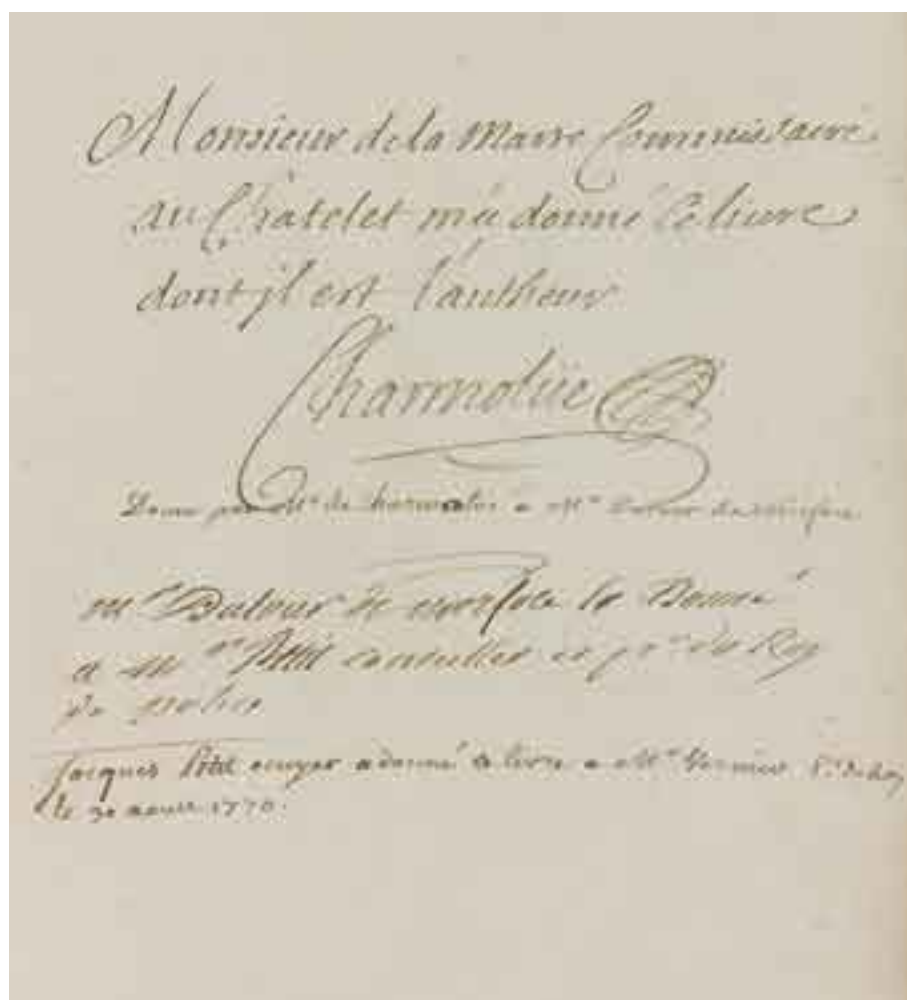 Monsieur de la Marre Commissaire
au Châtelet m'a donné Ce livre
dont jl est l'autheur
Charmolüe
Donné par Mr de harmolue a Mr Dutour de
mr Dutour de le Donné
a Mr Petit conseiller et pr du Roy
de police
Jacques Petit ecuyer a donné ce livre a Mr Vernier
le 30 1770.